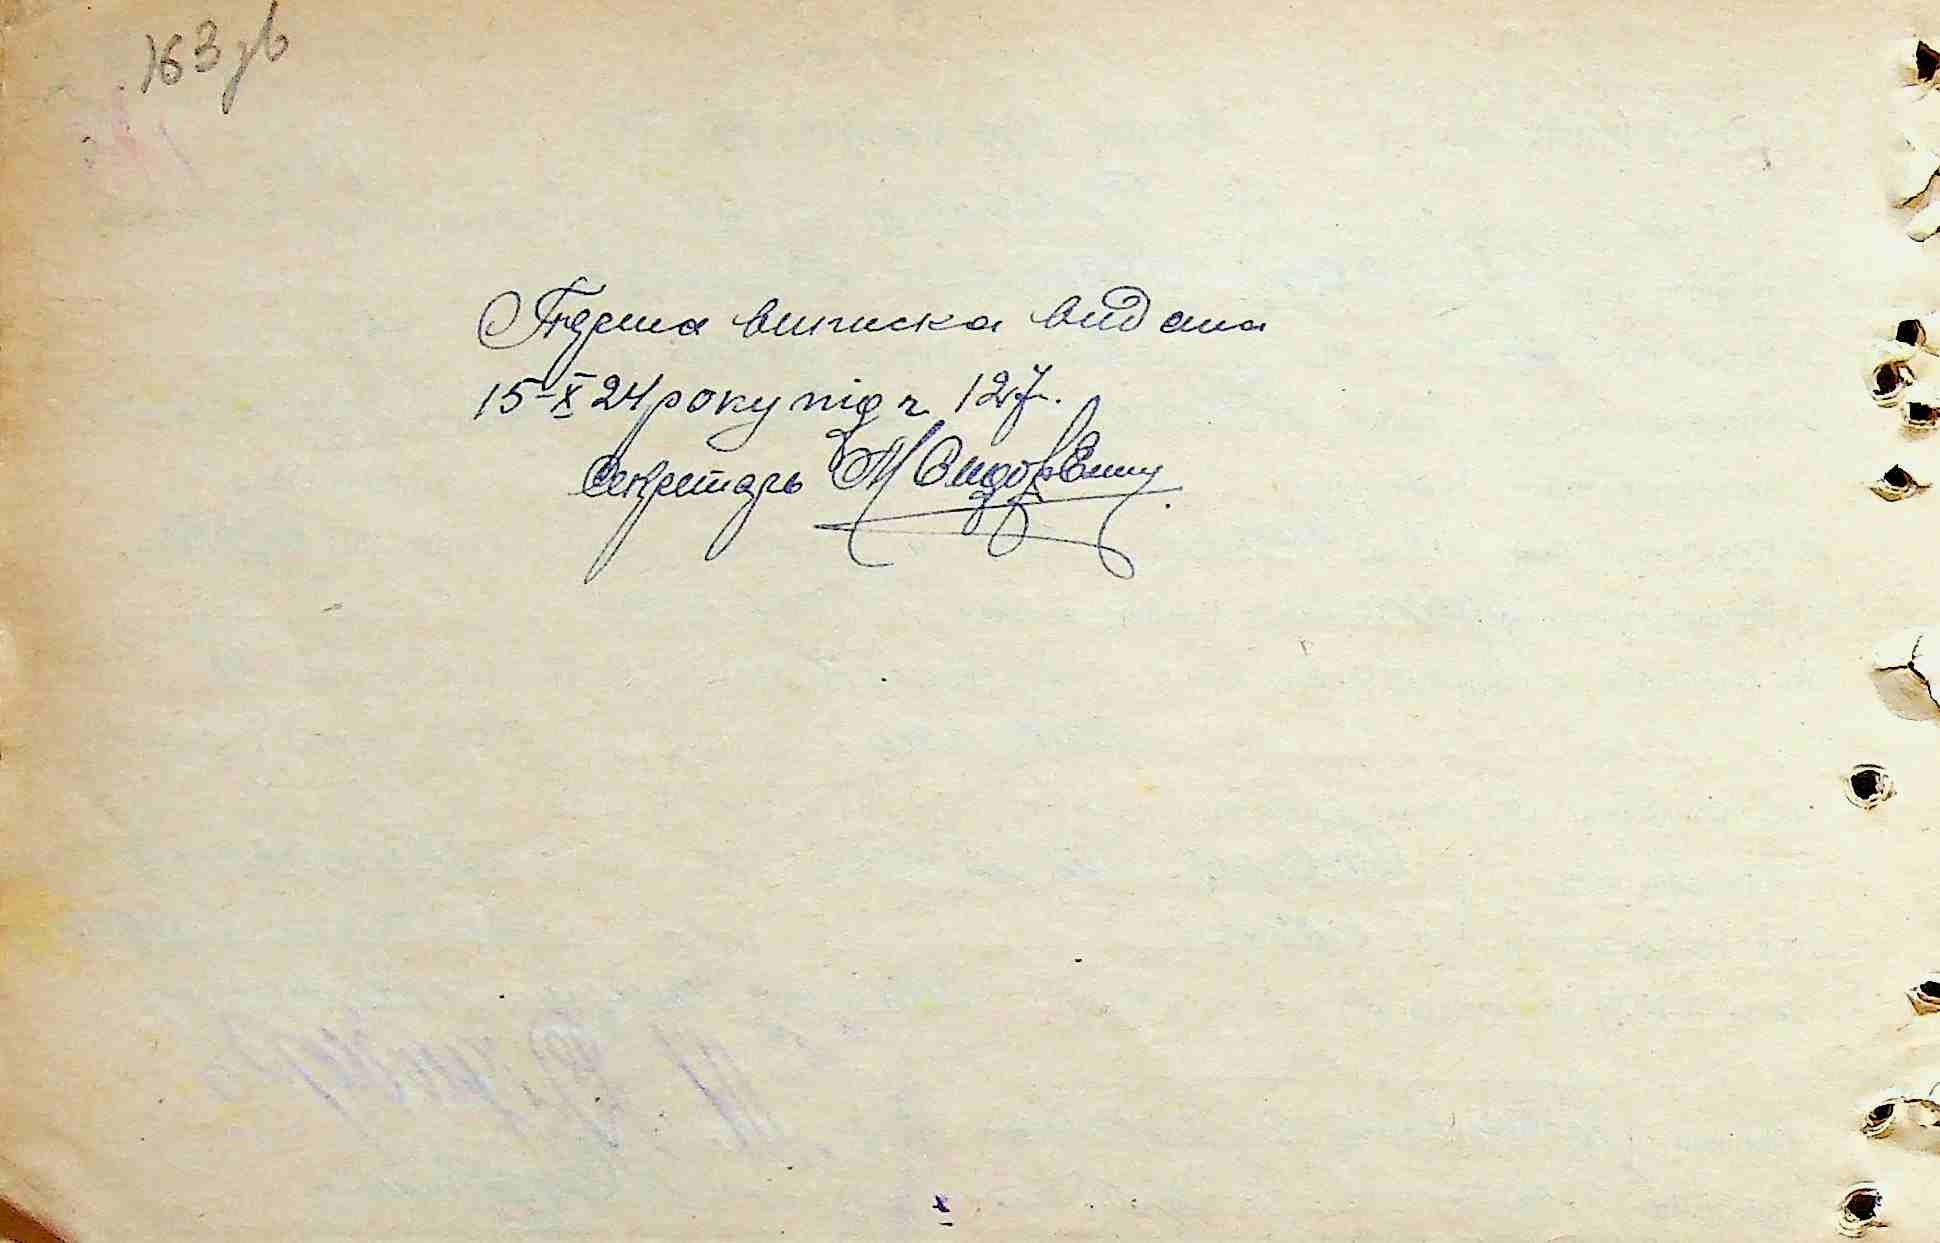 163 зв
Перша виписка видана
15-X 24 року під ч. 127.
Секретарь М Сидор